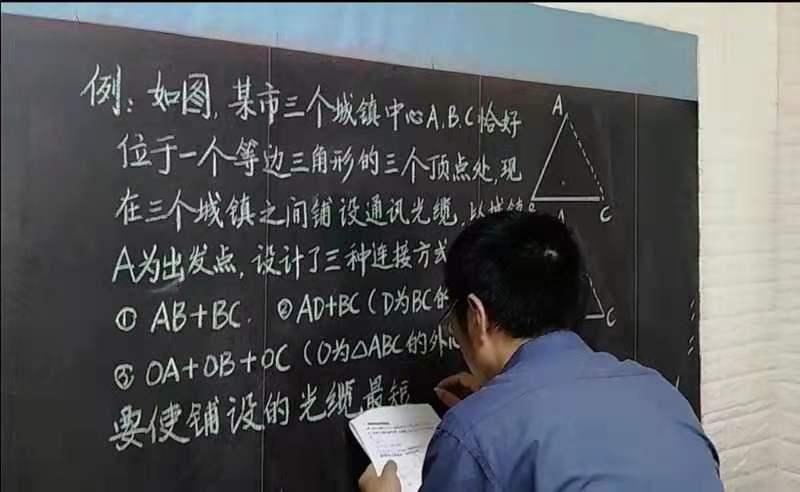 例：如图，某市三个城镇中心A,B,C恰好
位于一个等边三角形的三个顶点处，现
在三个城镇之间铺设通讯光缆，以城镇
A为出发点，设计了三种连接方式
① AB+BC. ② AD+BC（D为BC的
③ OA+OB+OC（O为△ABC的外心
要使铺设的光缆最短
A
C
C